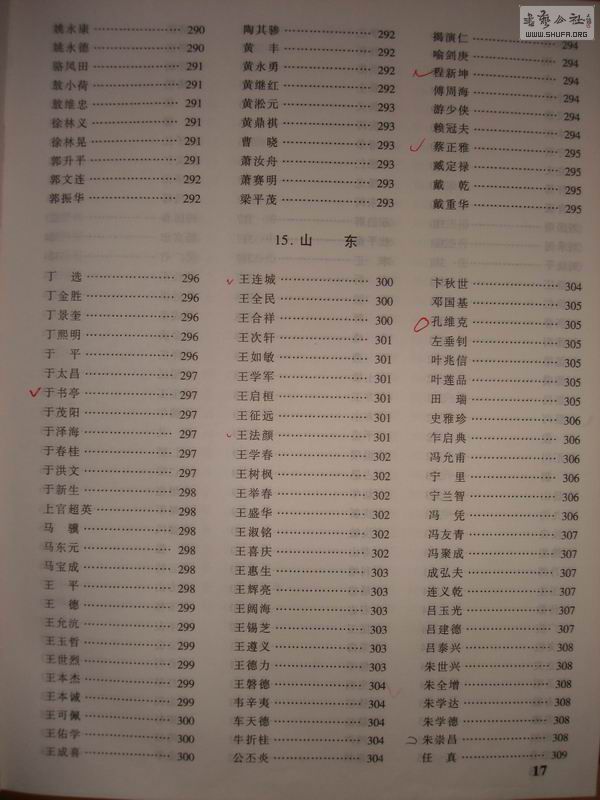 書藝公社
WWW.SHUFA.ORG
姚永康………………290
姚永德………………290
骆凤田………………291
敖小荷………………291
敖维忠………………291
徐林义………………291
徐林晃………………291
郭升平………………291
郭文连………………292
郭振华………………292
陶其骖………………292
黄　丰………………292
黄永勇………………292
黄继红………………292
黄淞元………………293
黄鼎祺………………293
曹　晓………………293
萧汝舟………………293
萧赛明………………293
梁平茂………………293
揭演仁………………294
喻剑庚………………294
程新坤………………294
傅周海………………294
游少侠………………294
赖冠夫………………294
蔡正雅………………295
戴定禄………………295
戴　乾………………295
戴重华………………295
15.山　东
丁　选………………296
丁金胜………………296
丁景奎………………296
丁熙明………………296
于　平………………296
于太昌………………297
于书亭………………297
于茂阳………………297
于泽海………………297
于春桂………………297
于洪文………………297
于新生………………298
上官超英………………298
马　骥………………298
马东元………………298
马宝成………………298
王　平………………298
王　德………………299
王允沆………………299
王玉哲………………299
王世烈………………299
王本杰………………299
王本诚………………299
王可佩………………300
王佑学………………300
王成喜………………300
王连城………………300
王全民………………300
王合祥………………300
王次轩………………301
王如敏………………301
王学军………………301
王启桓………………301
王征远………………301
王法颜………………301
王学春………………302
王树枫………………302
王举春………………302
王盛华………………302
王淑铭………………302
王喜庆………………302
王惠生………………303
王辉亮………………303
王阔海………………303
王锡芝………………303
王遵义………………303
王德力………………303
王磐德………………304
韦辛夷………………304
车天德………………304
牛折桂………………304
公丕炎………………304
卞秋世………………304
邓国基………………305
孔维克………………305
左垂钊………………305
叶兆信………………305
叶莲品………………305
田　瑞………………305
史雅珍………………306
乍启典………………306
冯允甫………………306
宁　里………………306
宁兰智………………306
冯　凭………………306
冯友青………………307
冯聚成………………307
成弘夫………………307
连义乾………………307
吕玉光………………307
吕建德………………307
吕泰兴………………308
朱世兴………………308
朱全增………………308
朱学达………………308
朱学德………………308
朱崇昌………………308
任　真………………309
17